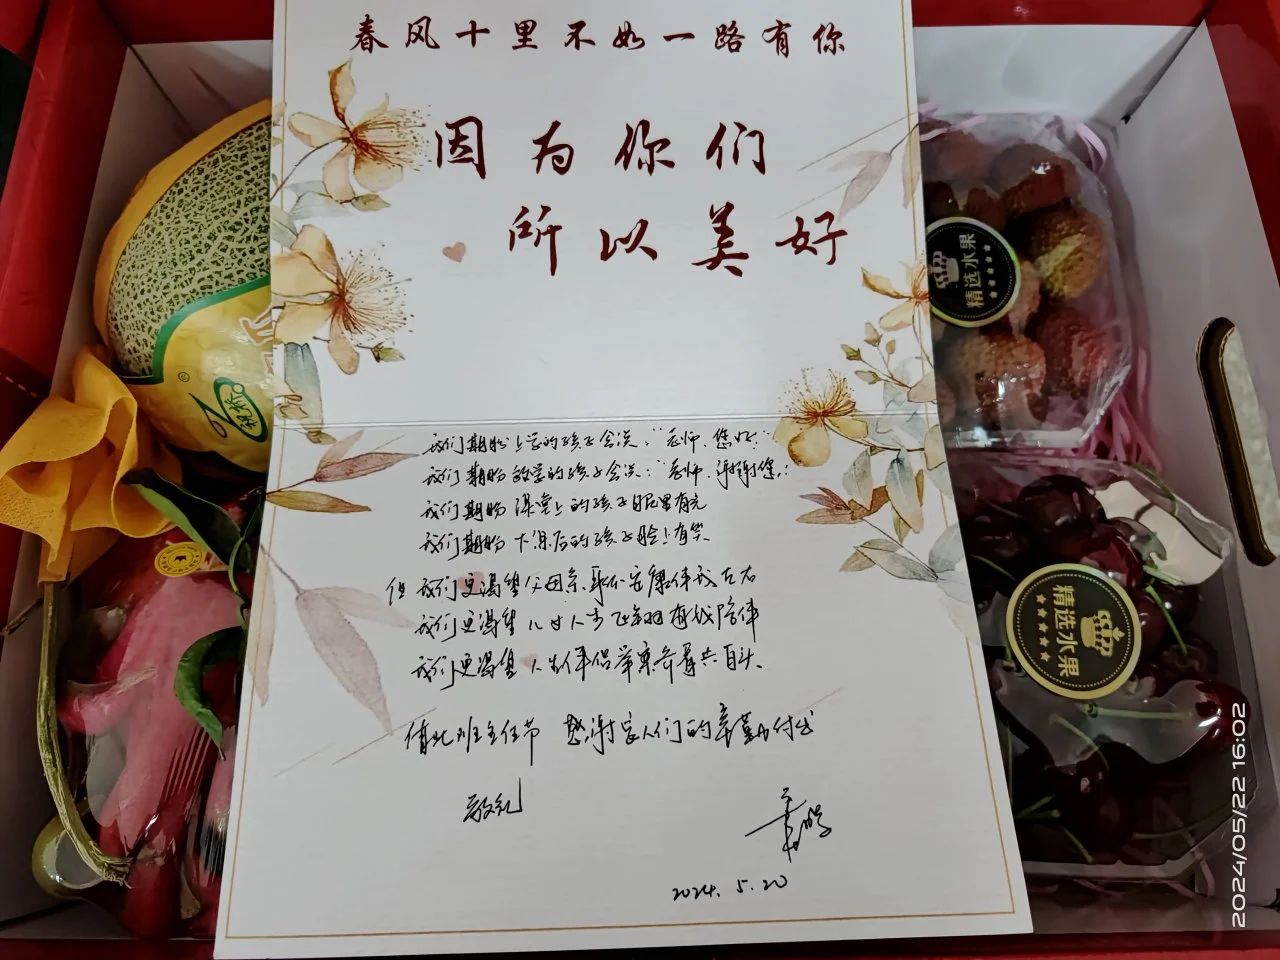 春风十里不如一路有你
因为你们
所以美好
我们期盼上学的孩子会说："老师，您好！"
我们期盼放学的孩子会说："老师，谢谢您！"
我们期盼课堂上的孩子眼里有光
我们期盼下课后的孩子脸上有笑
但我们更渴望父母亲朋安康伴我左右
我们更渴望儿时人步正当有我陪伴
我们更渴望人生伴侣举案齐眉共白头、
值此班主任节 感谢家人们的辛勤付出
敬礼
2024.5.20
精选水果
精选水果
2024/05/22 16:02